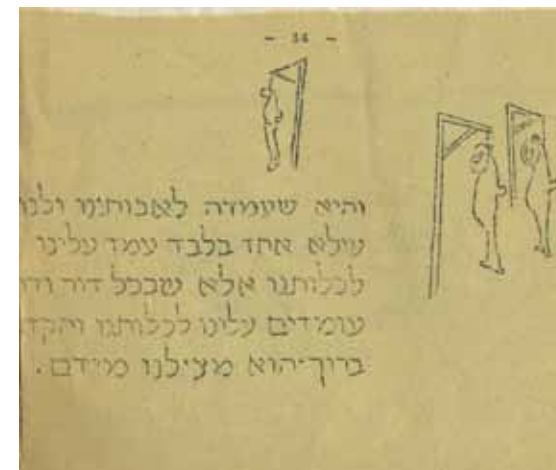 - 14 -
והיא שעמדה לאבותינו ולנו
שלא אחד בלבד עמד עלינו
לכלותנו אלא שבכל דור ודור
עומדים עלינו לכלותנו והקד
ברוך־הוא מצילנו מידם.